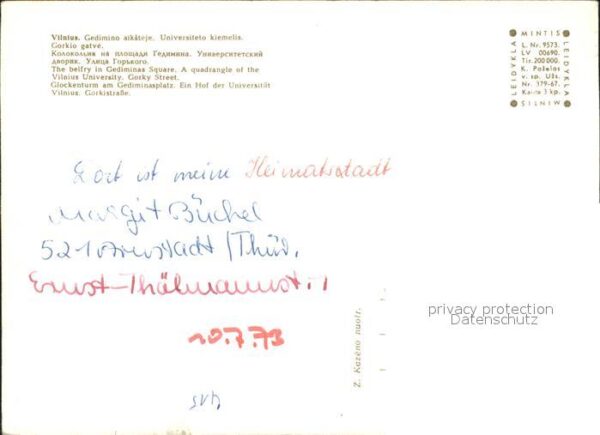 Vilnius. Gedimino aikštėje. Universiteto kiemelis.
Gorkio gatvė.
Колокольня на площади Гедимина. Университетский
дворик. Улица Горького.
The belfry in Gediminas Square. A quadrangle of the
Vilnius University. Gorky Street.
Glockenturm am Gediminasplatz. Ein Hof der Universität
Vilnius. Gorkistraße.
MINTIS
LEIDYKLA
L. Nr. 9573.
LV 00690.
Tir. 200 000.
K. Poželos
v. sp. Užs.
Nr. 379-67.
Kaina 3 kp.
LEIDYKLA
MINTIS
Dort ist meine Heimatsstadt
Margit Büchel
521 Arnstadt/Thür.
Ernst-Thälmannst. 1
10.7.73
Z. Kazėno nuotr.
privacy protection
Datenschutz